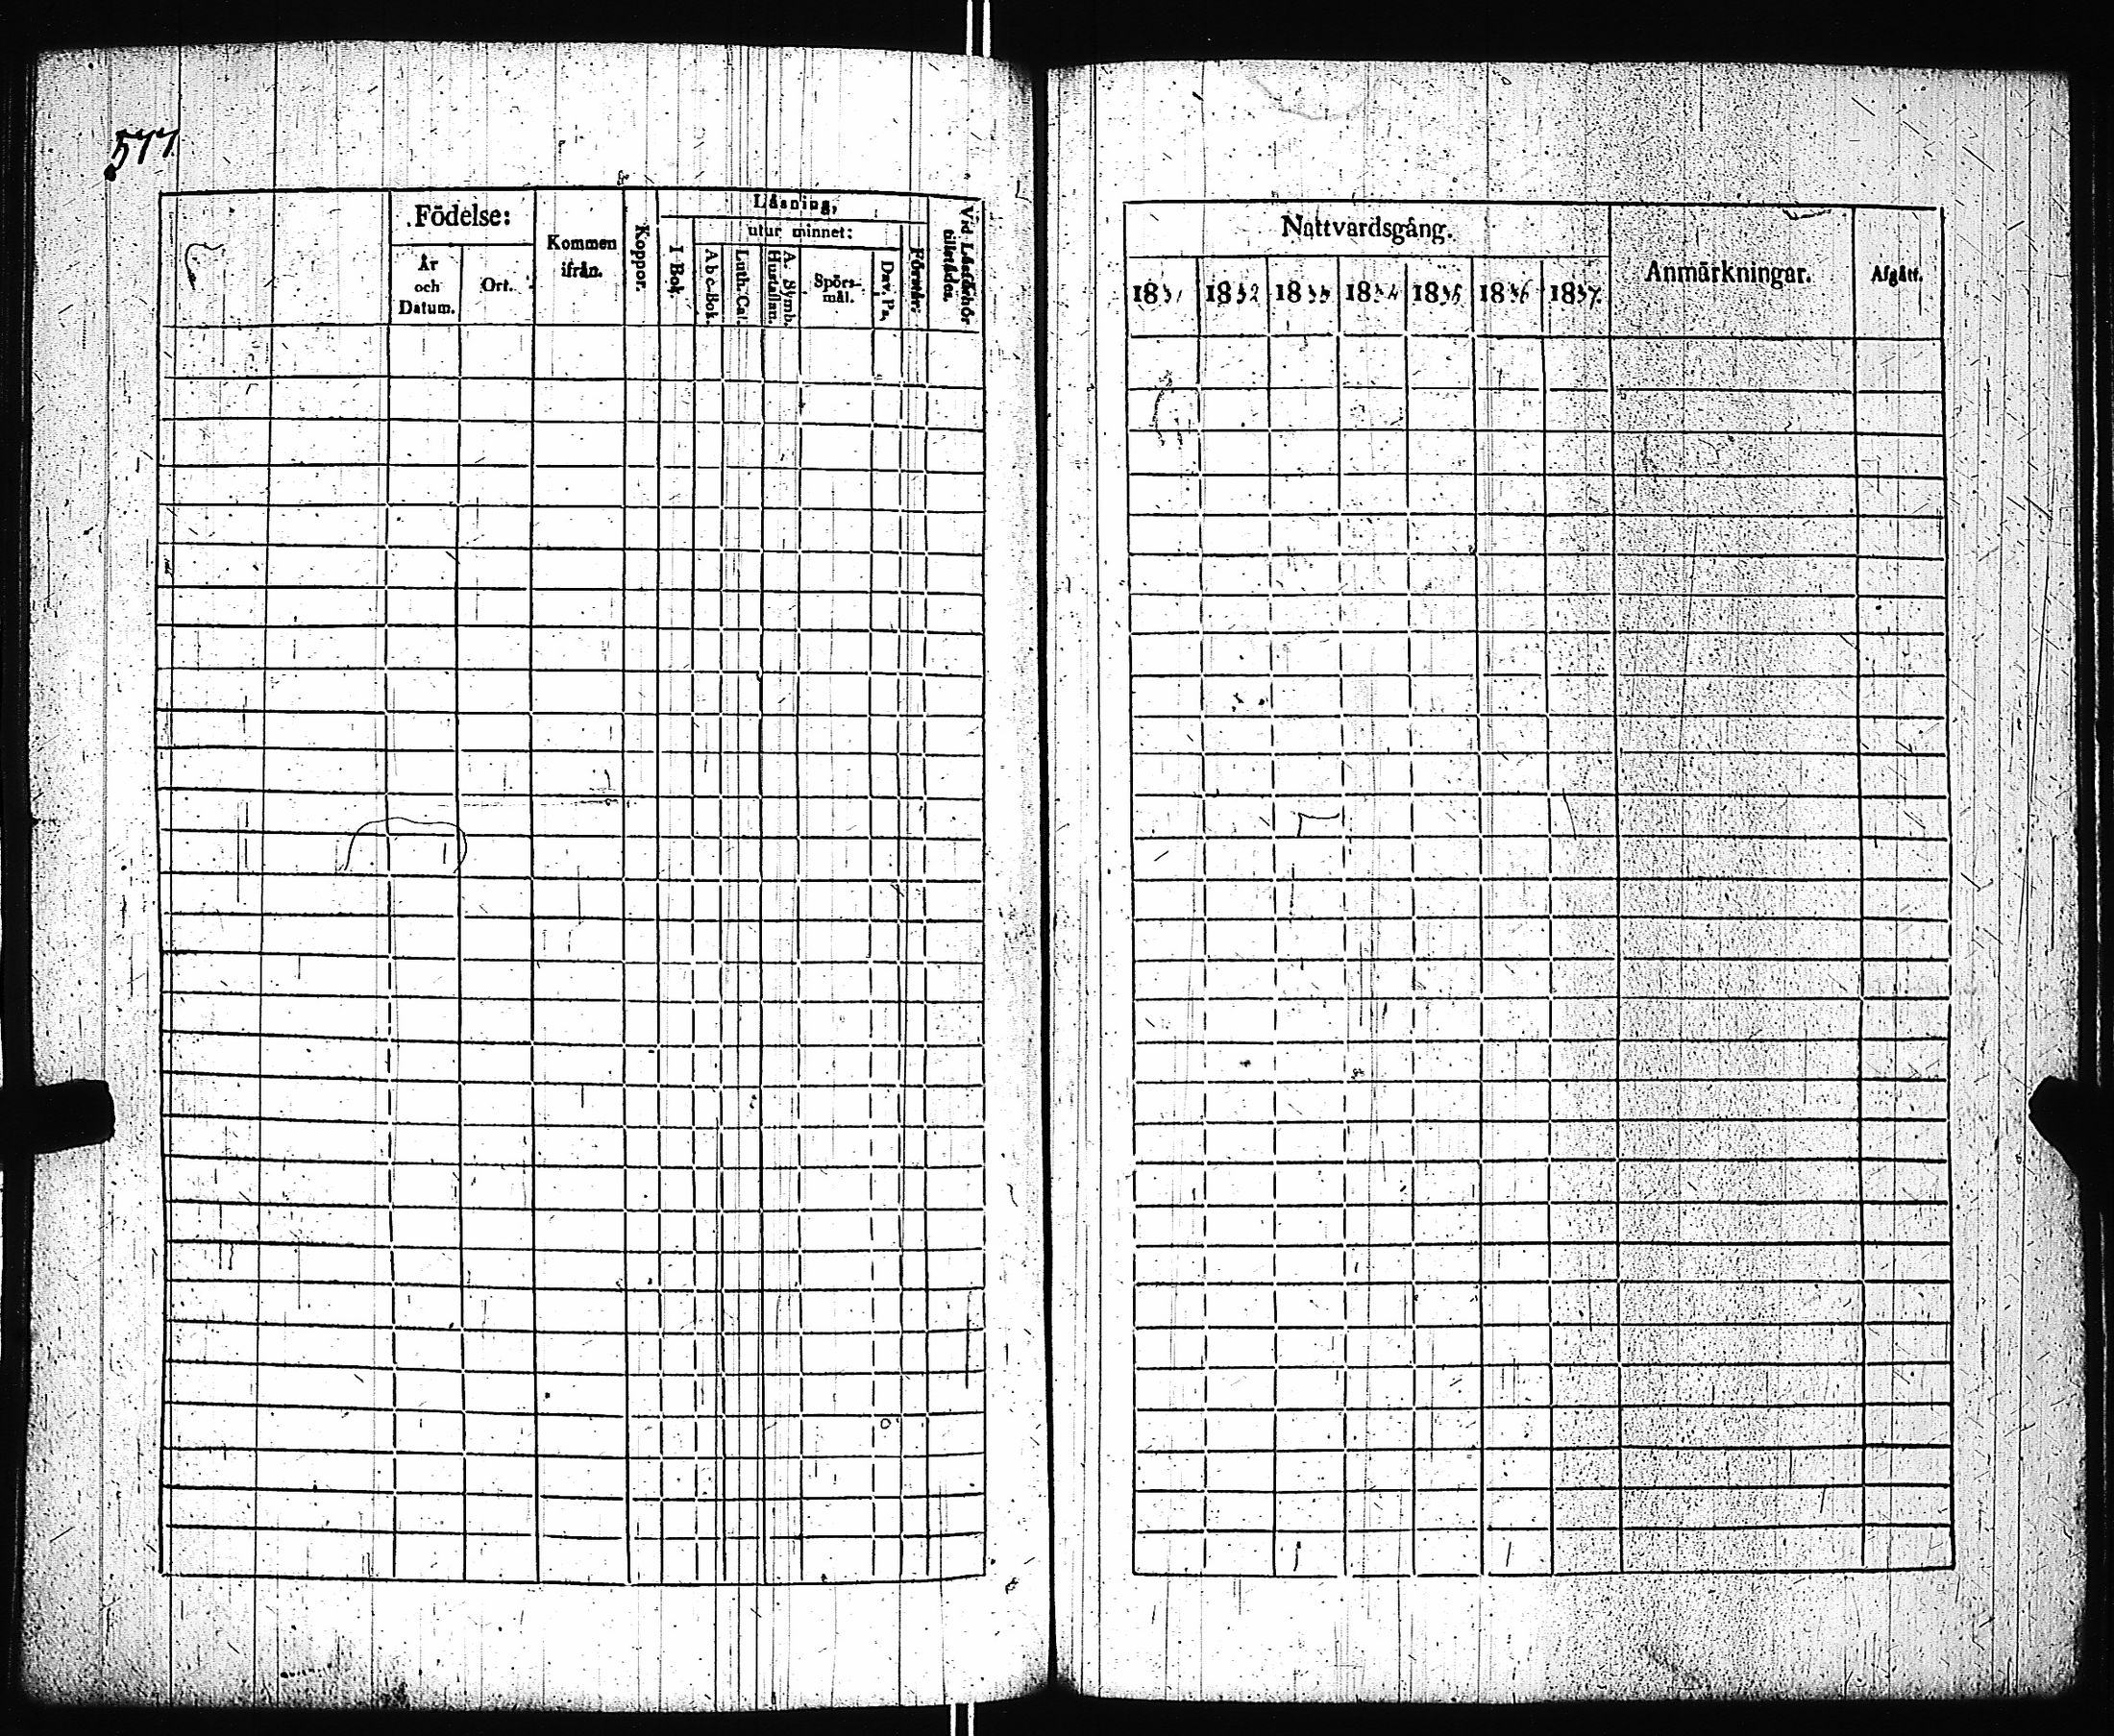 577
Födelse:
År och Datum.
Ort.
Kommen ifrån.
Koppor.
Läsning,
I Bok.
utur minnet:
Abc-Bok.
Luth. Cat.
A. Symb. Hustaflan.
Spörs-mål.
Dav. Ps.
Förstår:
Vid Läsförhör tillstädes.
Nattvardsgång.
1831 1832 1833 1834 1835 1836 1837.
Anmärkningar.
Afgått.